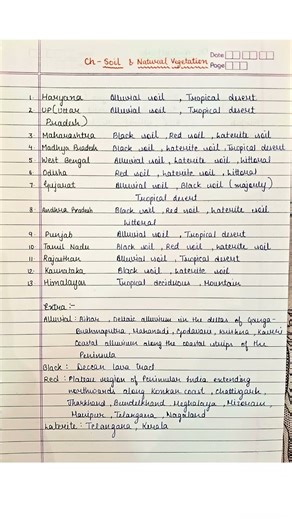 Date
Page
Ch - Soil & Natural Vegetation
1. Haryana Alluvial soil, Tropical desert
2. UP (Uttar Alluvial soil, Tropical desert
Pradesh)
3. Maharashtra Black soil, Red soil, Laterite soil
4. Madhya Pradesh Black soil, Laterite soil, Tropical desert
5. West Bengal Alluvial soil, Laterite soil, Littoral
6. Odisha Red soil, Laterite soil, Littoral
7. Gujarat Alluvial soil, Black soil (majorly)
Tropical desert
8. Andhra Pradesh Black soil, Red soil, Laterite soil
Littoral
9. Punjab Alluvial soil, Tropical desert
10. Tamil Nadu Black soil, Red soil, Laterite soil
11. Rajasthan Alluvial soil, Tropical desert
12. Karnataka Black soil, Laterite soil
13. Himalayas Tropical deciduous, Mountain
Extra :-
Alluvial : Bihar, Deltaic alluvium in the deltas of Ganga-
Brahmaputra, Mahanadi, Godavari, Krishna, Kaveri
Coastal alluvium along the coastal strips of the
Peninsula
Black : Deccan lava tract
Red : Plateau region of Peninsular India extending
northwards along Konkan coast, Chattisgarh,
Jharkhand, Bundelkhand, Meghalaya, Mizoram,
Manipur, Telangana, Nagaland
Laterite : Telangana, Kerala